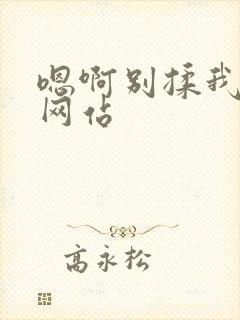 嗯啊别揉我
网佔
高永松